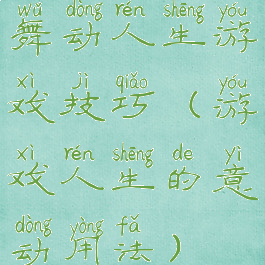 wǔ dòng rén shēng yóu
舞动人生游
xì jì qiǎo yóu
戏技巧（游
xì rén shēng de yì
戏人生的意
dòng yòng fǎ
动用法）